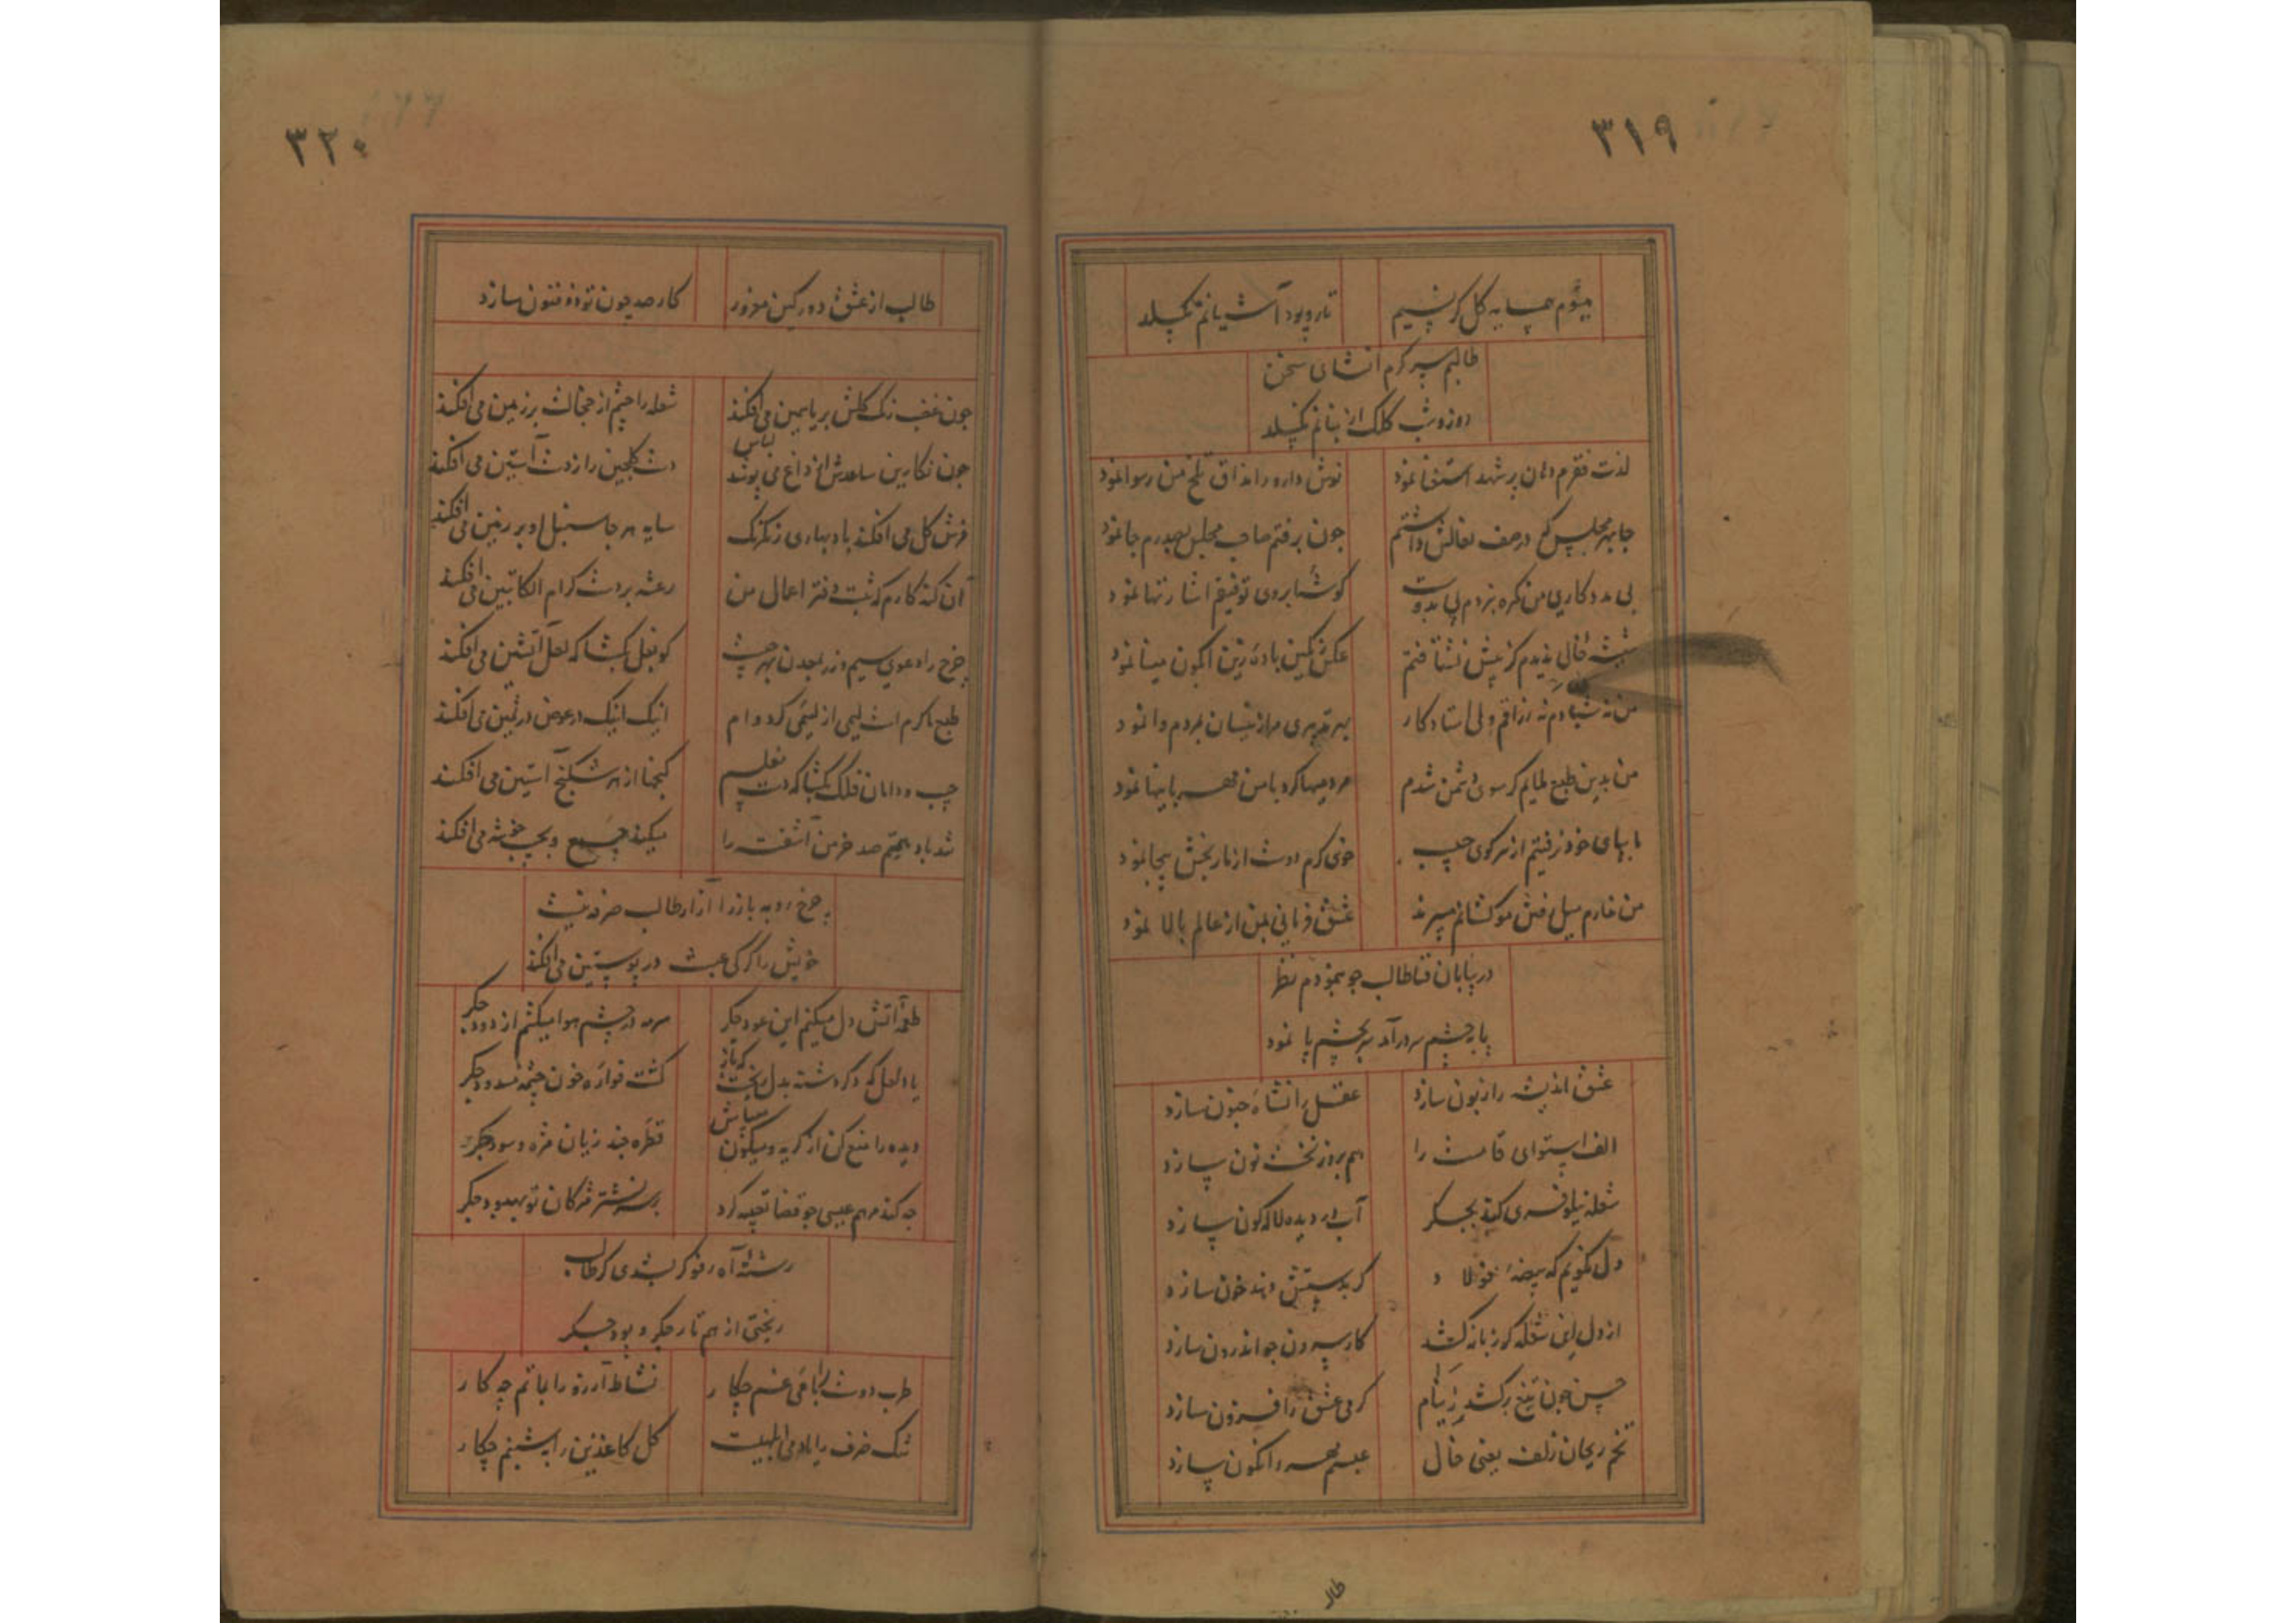 ۳۱۹
میشوم همسایه گل گر نسیم تار و پود آشیانم نگسلد
طالبم سر گرم انشای سخن
روز و شب کلک از بنانم نگسلد
لذت فقرم دهان پر شهد استغنا نمود نوش دارو را مذاق تلخ من رسوا نمود
جا بهر مجلس که در صف نعالش داشتم چون برفتم صاحب مجلس بصدرم جا نمود
بی مددکاری من نکره نبردم پی بدوست گوشه ابروی توفیقم اشارتها نمود
شیشه خالی ندیدم کز پیش نشتافتم عکس رنگین باده زین آبگون مینا نمود
من نه شیادم نه رزاقم ولی استاد کار بهر تدبیری مرا زینسان بمردم وا نمود
من بدین طبع ملایم گر سوی دشمن شدم مردمیها کرد با من مهربانیها نمود
با پهای خود نرفتم از سر کوی حبیب خوی گرم دوست از نار نجش بیجا نمود
من ندارم میل فتن موکشانم میبرند عشق فرمانی بمن از عالم بالا نمود
در بیابان فنا طالب چو بنمودم نظر
پا بچشم سر درآمد سر بچشم پا نمود
عشق اندیشه را زبون سازد عقل را نشاه جنون سازد
الف استوای قامت را هم بروز نخست نون سازد
شعله نیلوفری کند بجگر آب در دیده لاله گون سازد
دل نگویم که بیضه فولاد گر بدستش دهند خون سازد
از دل این شعله گر زبانه کشد کار بیرون چو اندرون سازد
حسن چون تیغ برکشد ز نیام گرمی عشق را فزون سازد
تخم ریحان زلف یعنی خال عنبرم مهر وا نکون سازد
طالب
۳۲۰
طالب از عشق دور کین مغرور کار صد چون تو ذوفنون سازد
چون غضب رنگ گلش بر یاسمین می افکند شعله را چشم از خجالت بر زمین می افکند
چون نگارین ساعدش از داغ می پوشد لباس دست گلچین را ز دست آستین می افکند
فرش گل می افکند باد بهاری رنگ رنگ سایه هر جا سنبل او بر زمین می افکند
آن گنه کارم که ثبت دفتر اعمال من رعشه بر دست کرام الکاتبین می افکند
چرخ را دعوی سیم و زر بمعدن بهر چیست گو بغل بگشا که لعل آتشین می افکند
طبع با کرم است لیمی از لئیمی کرد وام اینک اینک در عوض در ثمین می افکند
جیب و دامان فلک بگشا که دست مفلسم گنجها از هر شکنج آستین می افکند
تند باد همتم صد خرمن آشفته را میکند جمع و بجیب خوشه می افکند
چرخ روبه باز را آزار طالب صرفه نیست
خویش را گرگی عبث در پوستین می افکند
طعمه آتش دل میکنم این عود جگر سرمه در چشم هوا میکشم از دود جگر
یاد لعل که دگر دشنه بدل ریخت که باز گشت فواره خون چشمه مسدود جگر
دیده را منع کن از گریه و میکن سپاس قطره چند زیان مژه و سود جگر
چه کند مرهم عیسی چو قضا تعبیه کرد بر سر نشتر مژگان تو بهبود جگر
رشته آه رفو گر بشدی گر طالب
ریختی از هم تار جگر و پود جگر
طرب دوست را با می غم چکار نشاط آرزو را بماتم چه کار
تنک ظرف را باده می ابلهیست گل کاغذین را بشبنم چکار